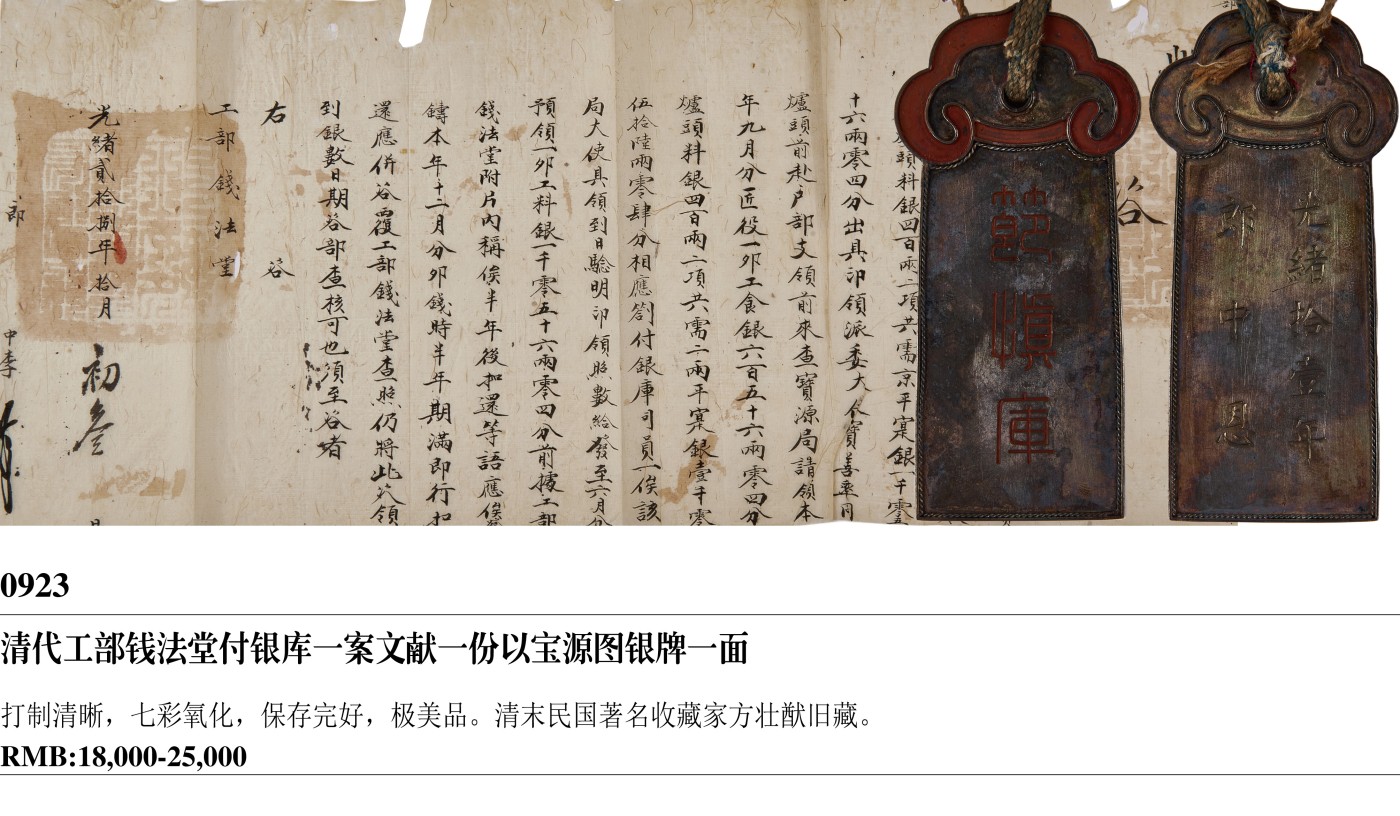 爐頭料銀四百兩二項共需京平寔銀一千零
十六兩零四分出具印領派委大使寳善率同
爐頭前赴户部支領前來查寳源局請領本
年九月分匠役一夘工食銀六百五十六兩零四分
爐頭料銀四百兩二項共需二兩平寔銀壹千零
伍拾陸兩零肆分相應劄付銀庫司員一俟該
局大使具領到日驗明印領照數給發至六月分
預領一夘工料銀一千零五十六兩零四分前據工部
錢法堂附片內稱俟半年後扣還等語應俟
鑄本年十二月分夘錢時半年期滿即行扣
還應併咨覆工部錢法堂查照仍將此次領
到銀數日期咨部查核可也須至咨者
右 咨
工部錢法堂
光緒貳拾捌年拾月 初叁
郎
中李
咨
節慎庫
光緒拾壹年
郎中恩
0923
清代工部钱法堂付银库一案文献一份以宝源图银牌一面
打制清晰，七彩氧化，保存完好，极美品。清末民国著名收藏家方壮猷旧藏。
RMB:18,000-25,000